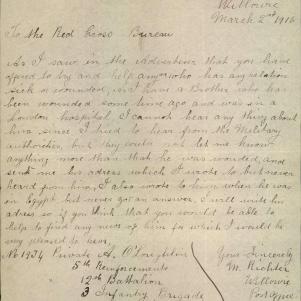 Willowie
March 2nd 1916
To the Red Cross Bureau
As I saw in the Advertiser that you have
offered to try and help anyone who has any relation
sick or wounded, as I have a Brother who has
been wounded some time ago and was in a
London hospital, I cannot hear any thing about
him since I tried to hear from the Military
authorities, but they could not let me know
anything more than that he was wounded, and
sent me his adress which I wrote to but never
heard from him, I also wrote to him when he was
in Egypt but never got an answer, I will write his
adress so if you think that you would be able to
help to find any news of him for which I would be
very pleased to hear,
No 1934 Private A. O'Loughlin
5th Reinforcements
12th Battalion
3 Infantry Brigade
Yours Sincerely
M. Richter
Willowie